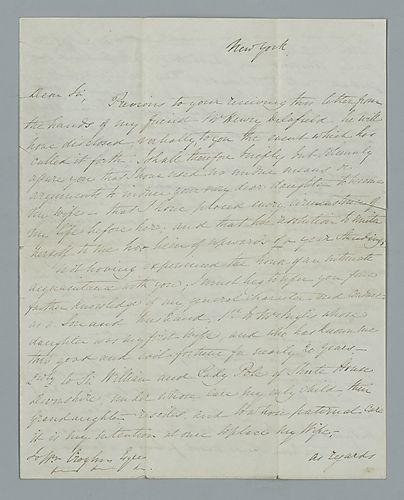 New York.
Dear Sir,
Previous to your receiving this letter from
the hands of my friend Mr Henry Delafield, he will
have disclosed verbally to you the event which has
called it forth. I shall therefore briefly but solemnly
assure you that I have used no undue means or
arguments to induce your very dear daughter to become
my wife - that I have placed every circumstance of
my life before her, and that her resolution to unite
herself to me has been of upwards of a year standing.
Not having experienced the honor of an intimate
acquaintance with you, I must hasten to refer you for a
farther knowledge of my general character and conduct
as a Son and Husband. 1st to Mr Inglis whose
daughter was my first wife, and who has known me
thro' good and bad fortune for nearly 20 years -
2ndly to Sir William and Lady Pole of Shute House
Devonshire, under whose care my only child - their
granddaughter resides, and to whose paternal care
it is my intention at once to place my Wife.
To Wm Croghan Esqre
as regards